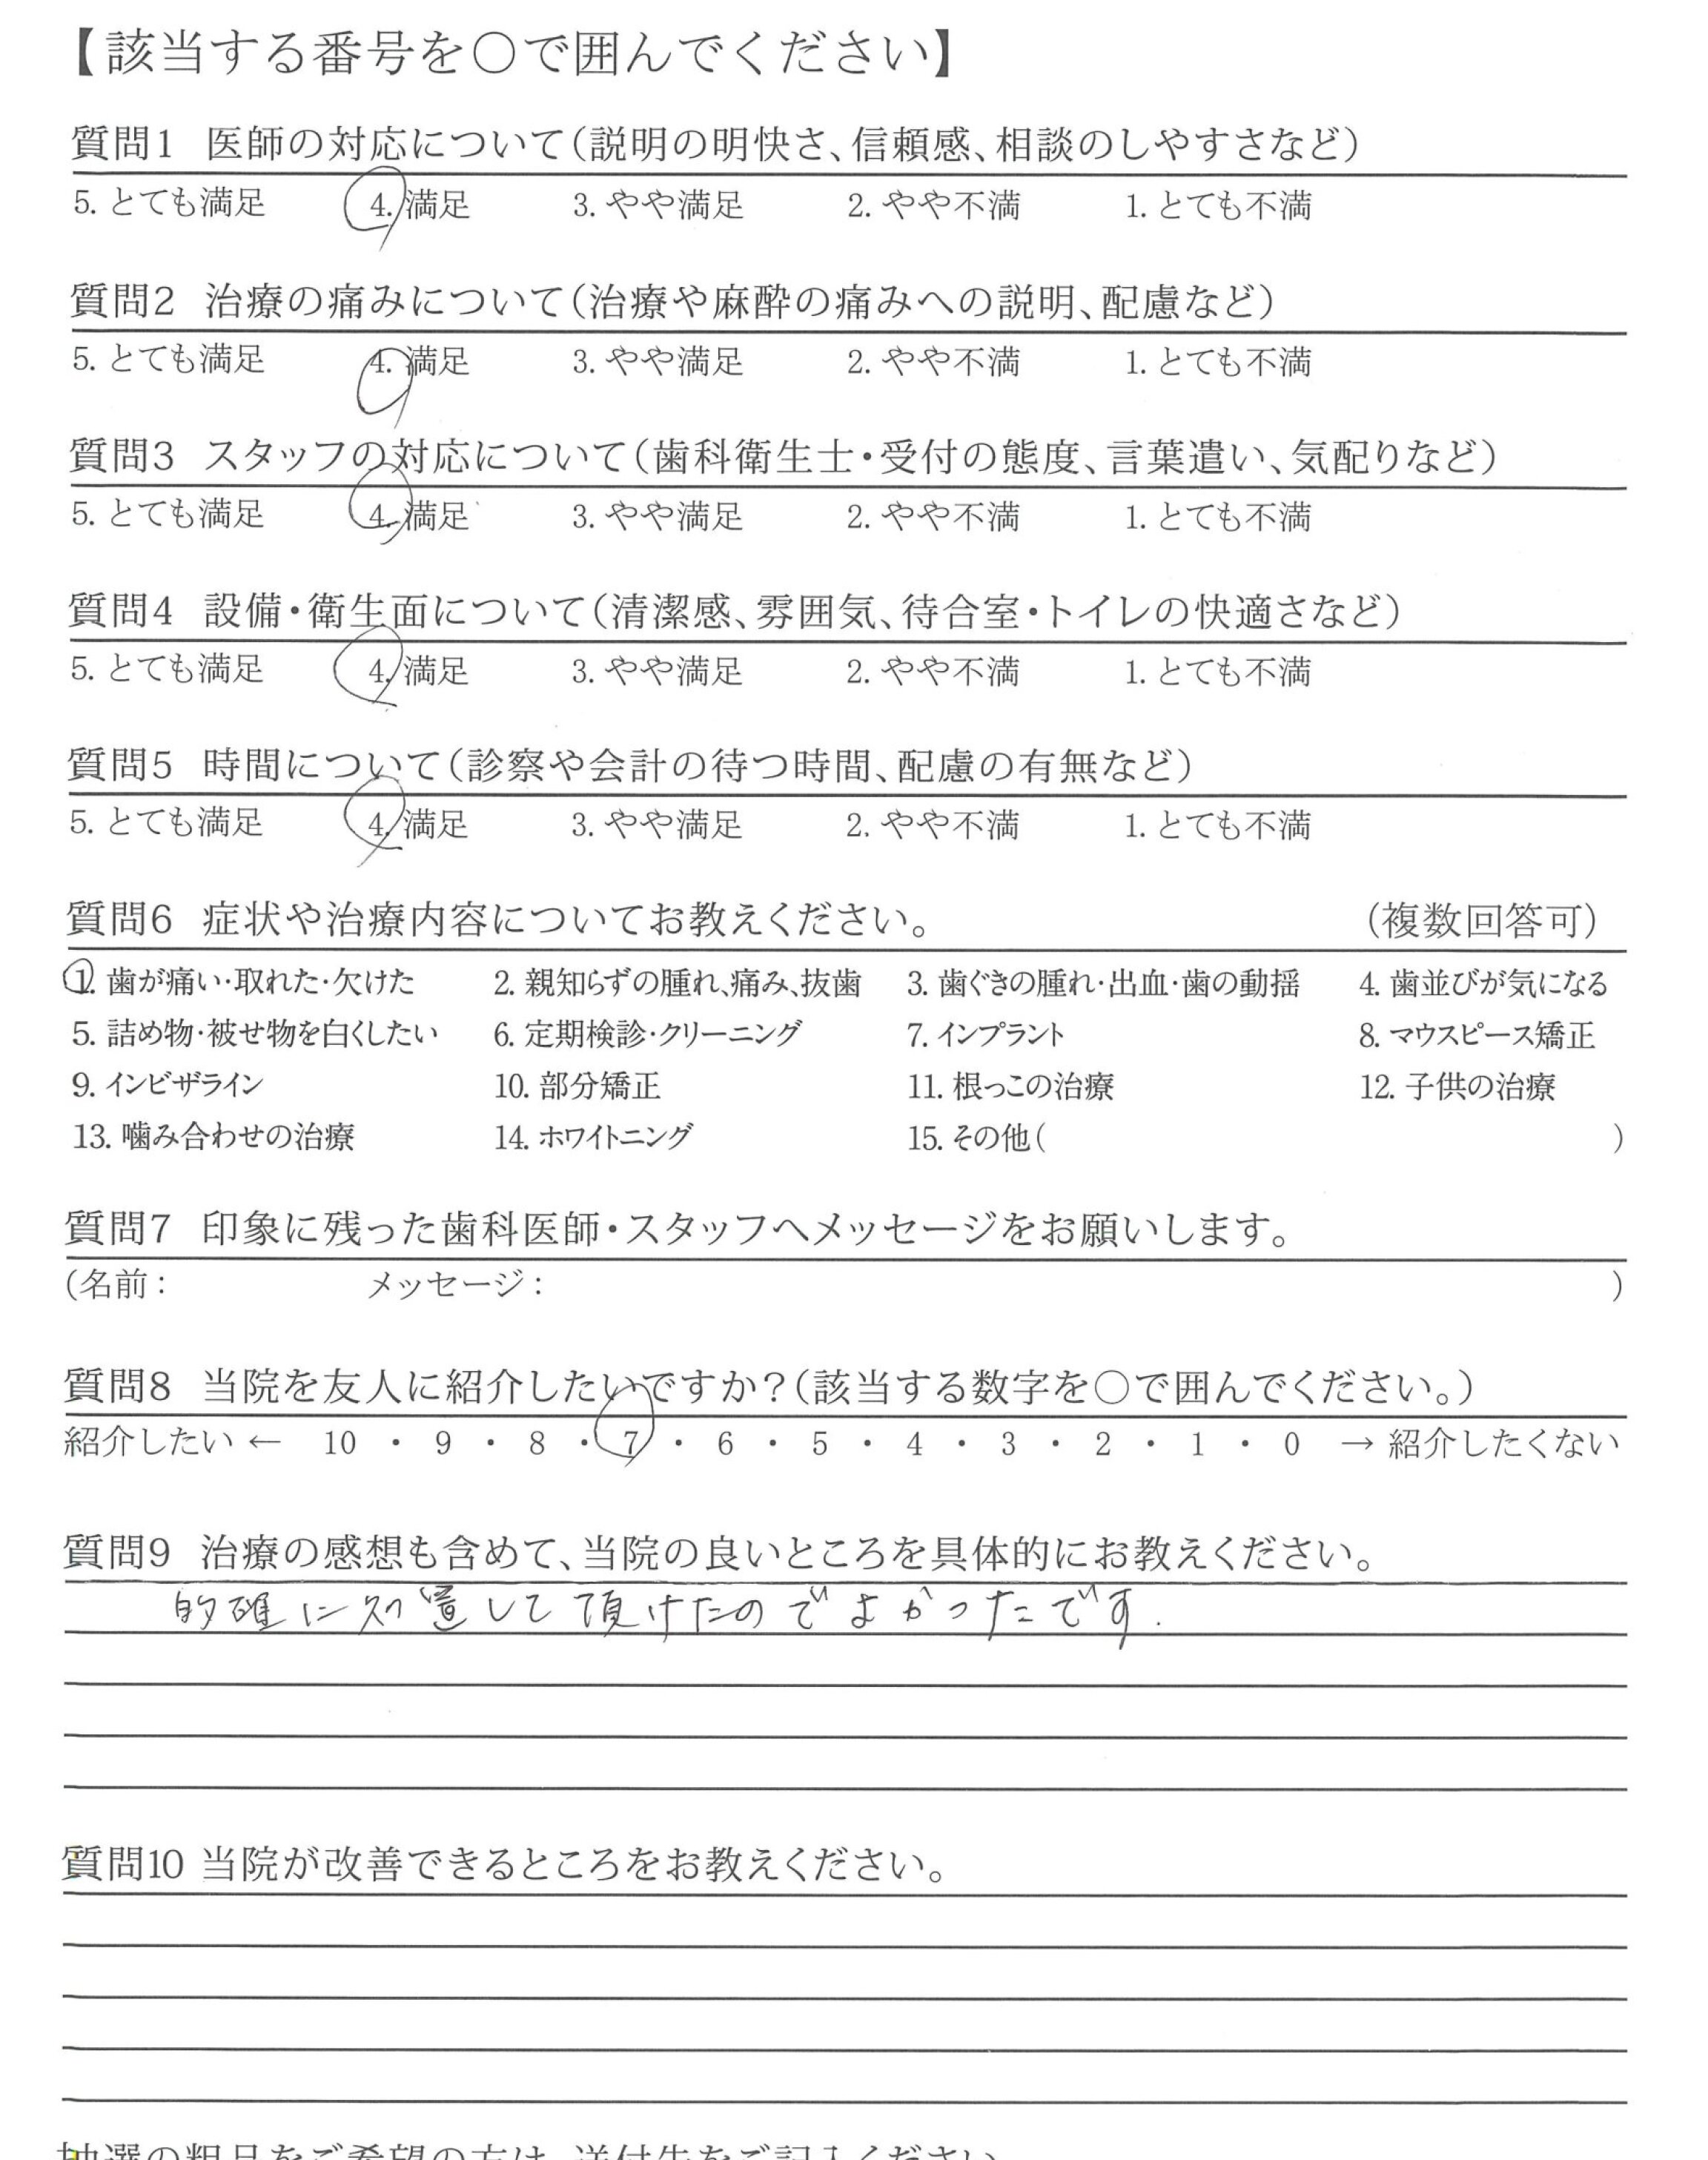 【該当する番号を○で囲んでください】
質問1 医師の対応について(説明の明快さ、信頼感、相談のしやすさなど)
5. とても満足 4. 満足 3. やや満足 2. やや不満 1. とても不満
質問2 治療の痛みについて(治療や麻酔の痛みへの説明、配慮など)
5. とても満足 4. 満足 3. やや満足 2. やや不満 1. とても不満
質問3 スタッフの対応について(歯科衛生士・受付の態度、言葉遣い、気配りなど)
5. とても満足 4. 満足 3. やや満足 2. やや不満 1. とても不満
質問4 設備・衛生面について(清潔感、雰囲気、待合室・トイレの快適さなど)
5. とても満足 4. 満足 3. やや満足 2. やや不満 1. とても不満
質問5 時間について(診察や会計の待つ時間、配慮の有無など)
5. とても満足 4. 満足 3. やや満足 2. やや不満 1. とても不満
質問6 症状や治療内容についてお教えください。 (複数回答可)
1. 歯が痛い・取れた・欠けた 2. 親知らずの腫れ、痛み、抜歯 3. 歯ぐきの腫れ・出血・歯の動揺 4. 歯並びが気になる
5. 詰め物・被せ物を白くしたい 6. 定期検診・クリーニング 7. インプラント 8. マウスピース矯正
9. インビザライン 10. 部分矯正 11. 根っこの治療 12. 子供の治療
13. 噛み合わせの治療 14. ホワイトニング 15. その他( )
質問7 印象に残った歯科医師・スタッフへメッセージをお願いします。
(名前: メッセージ: )
質問8 当院を友人に紹介したいですか?(該当する数字を○で囲んでください。)
紹介したい ← 10 ・ 9 ・ 8 ・ 7 ・ 6 ・ 5 ・ 4 ・ 3 ・ 2 ・ 1 ・ 0 → 紹介したくない
質問9 治療の感想も含めて、当院の良いところを具体的にお教えください。
的確に処置して頂けたのでよかったです.
質問10 当院が改善できるところをお教えください。
抽選の粗品をご希望の方は、送付先をご記入ください